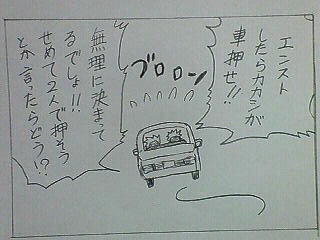 エンスト
したらカカシが
車押せ!!
ブロロン
無理に決まって
るでしょ!!
せめて2人で押そう
とか言ったらどう!?